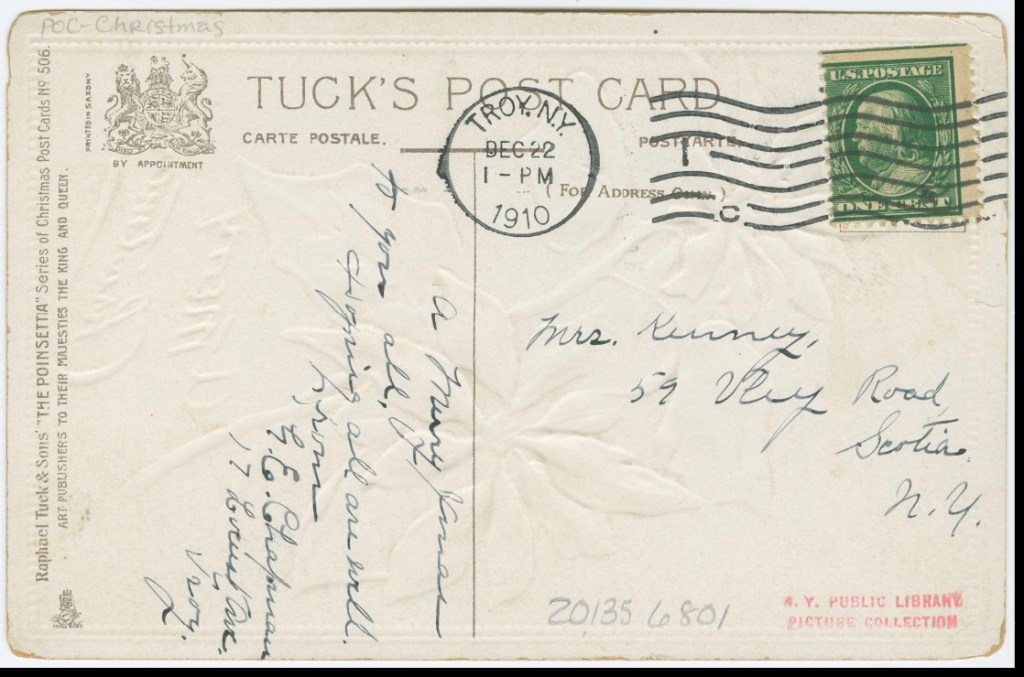 POC-Christmas
Raphael Tuck & Sons' "THE POINSETTIA" Series of Christmas Post Cards No 506.
ART PUBLISHERS TO THEIR MAJESTIES THE KING AND QUEEN.
PRINTED IN SAXONY
BY APPOINTMENT
TUCK'S POST CARD
CARTE POSTALE.
POSTKARTE.
(FOR ADDRESS ONLY.)
TROY, N.Y.
DEC 22
1-PM
1910
U.S. POSTAGE
ONE CENT
A Merry Xmas
to you all,
Hoping all are well.
From
G.E. Chapman
17 Locust Ave.
Troy.
Mrs. Kenney,
59 Vley Road,
Scotia.
N.Y.
20135 6801
N. Y. PUBLIC LIBRARY
PICTURE COLLECTION